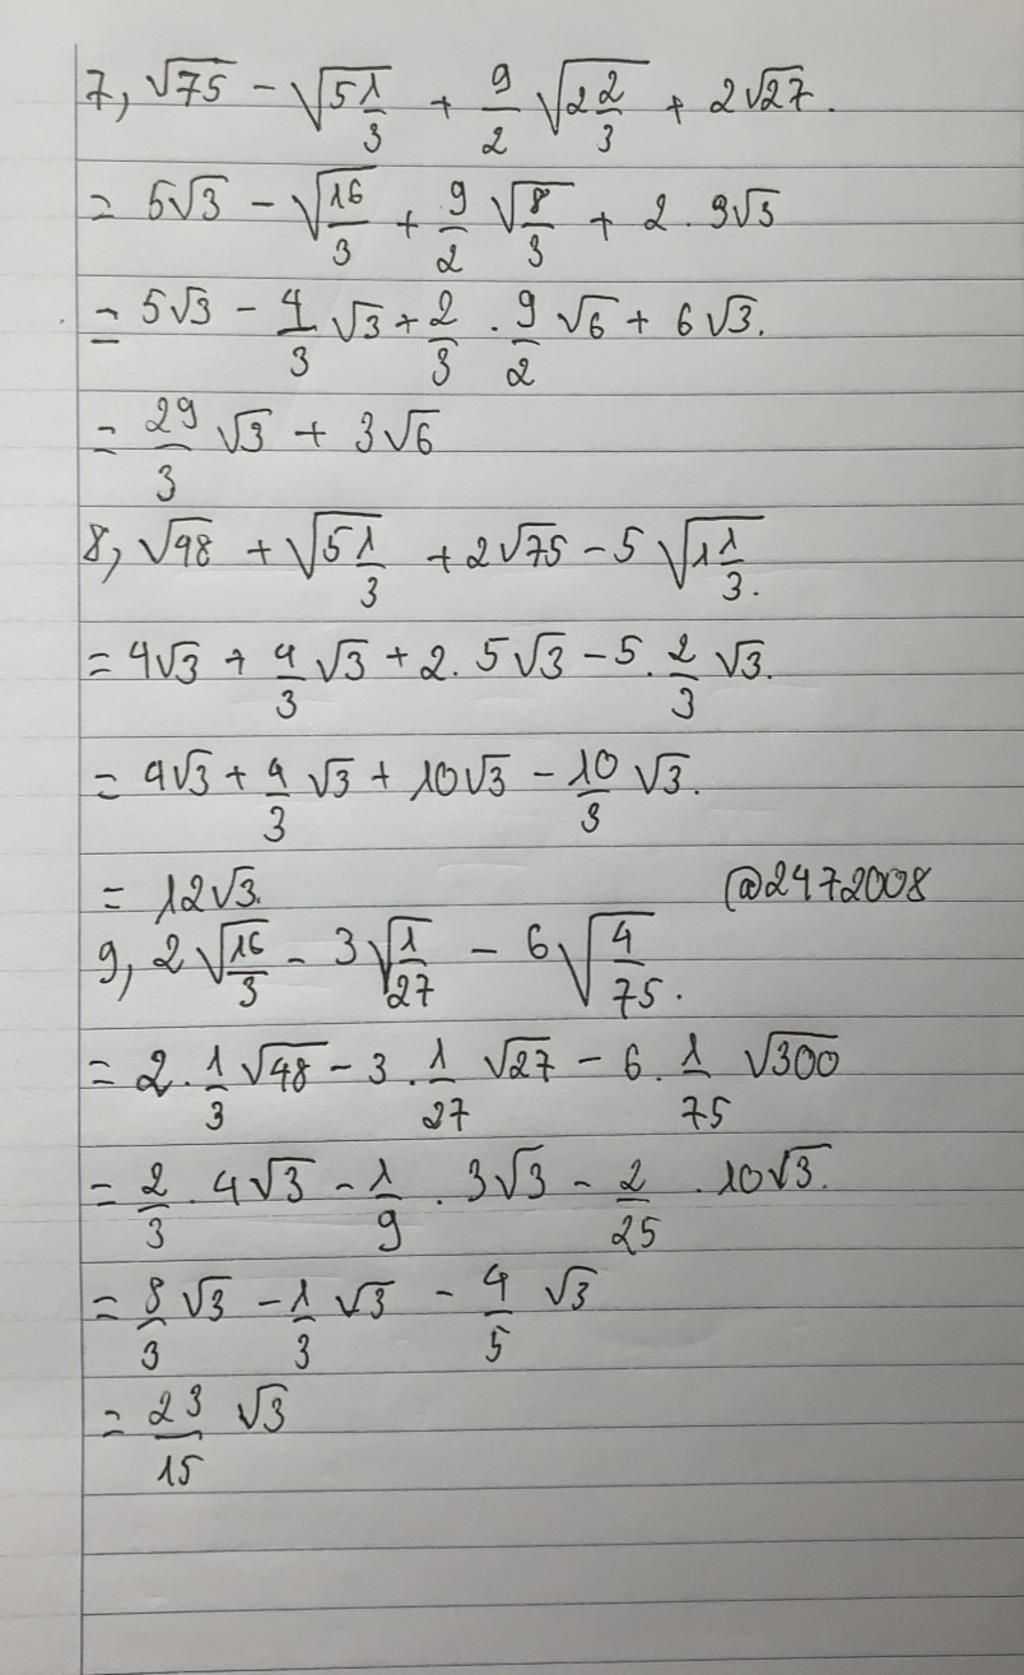 7, √75 - √(5 1/3) + 9/2 √(2 2/3) + 2√27.
= 5√3 - √(16/3) + 9/2 √(8/3) + 2 . 3√3
= 5√3 - 4/3 √3 + 2/3 . 9/2 √6 + 6√3.
= 29/3 √3 + 3√6
8, √48 + √(5 1/3) + 2√75 - 5 √(1 1/3).
= 4√3 + 4/3 √3 + 2. 5√3 - 5. 2/3 √3.
= 4√3 + 4/3 √3 + 10√3 - 10/3 √3.
= 12√3. @2472008
9, 2√(16/3) - 3√(1/27) - 6√(4/75).
= 2. 1/3 √48 - 3. 1/27 √27 - 6. 1/75 √300
= 2/3 . 4√3 - 1/9 . 3√3 - 2/25 . 10√3.
= 8/3 √3 - 1/3 √3 - 4/5 √3
= 23/15 √3